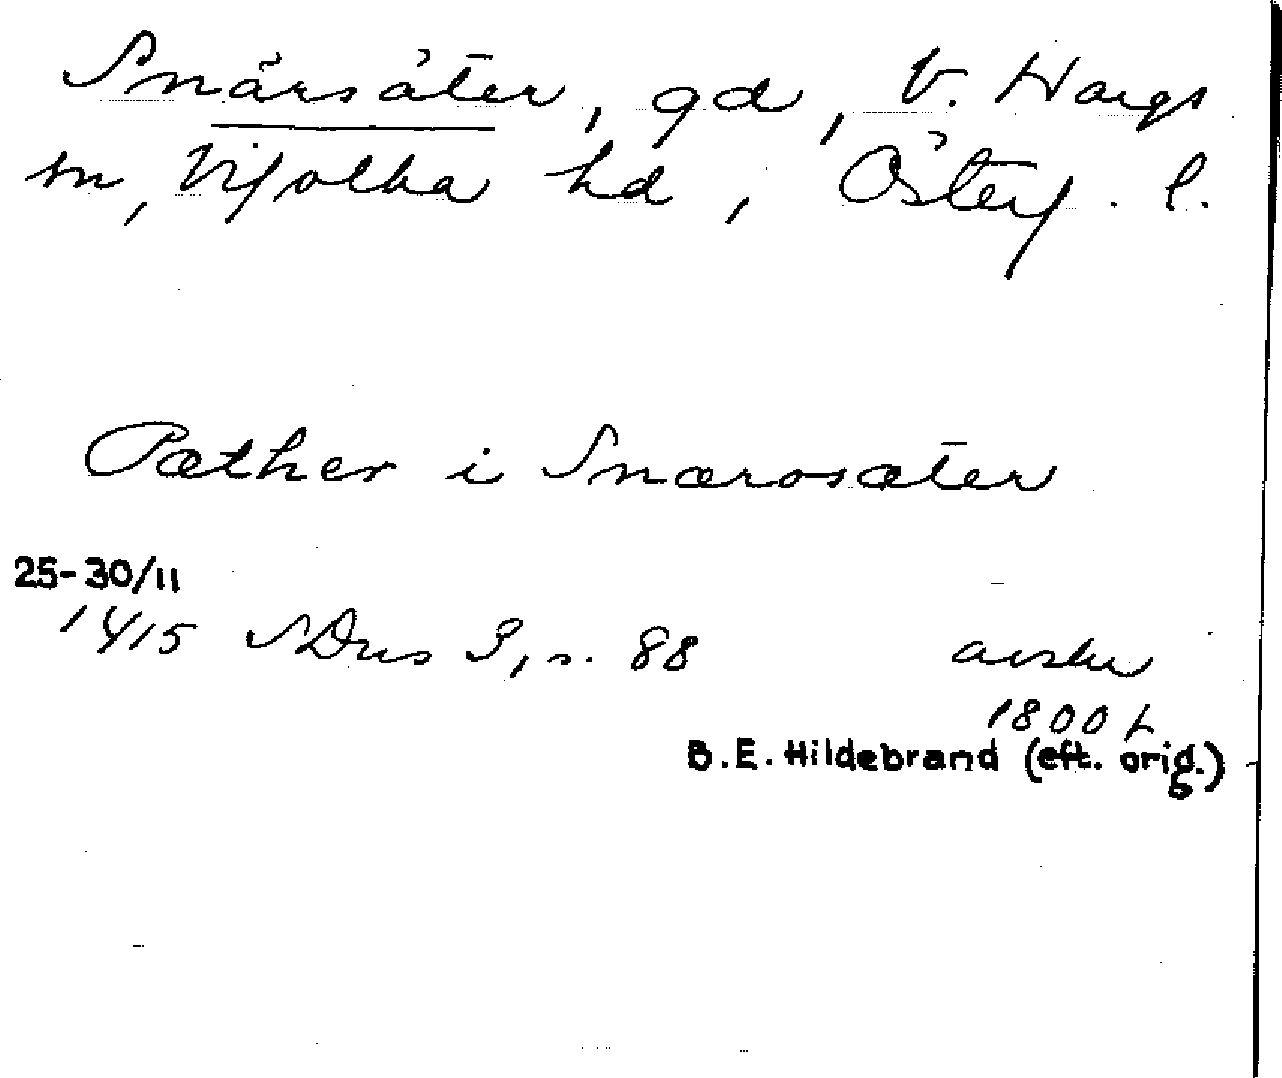 Snärsäter, gd, V. Hargs
sn, Vifolka hd, Österg. l.
Pæther i Snærosæter
25-30/11
1415 SDns 3, s. 88 avskr
1800 t
B.E. Hildebrand (eft. orig.)